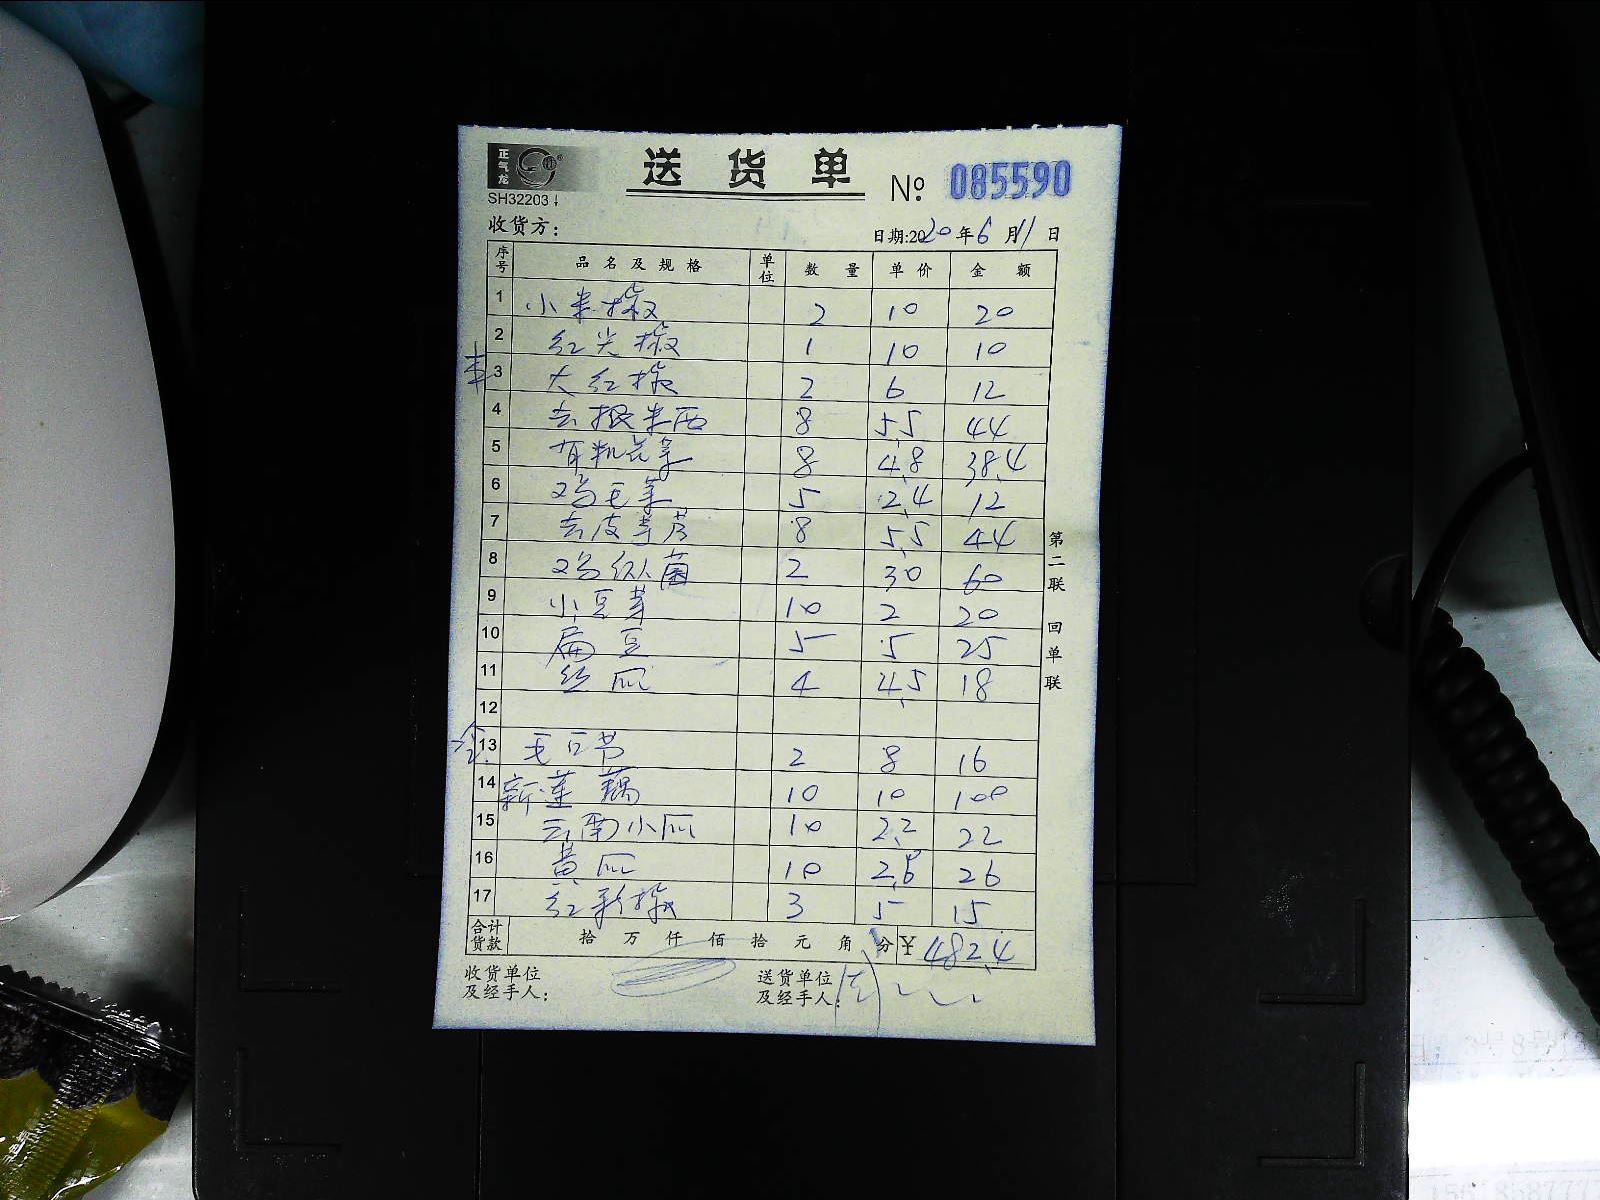 正气龙
送货单 No. 085590
SH32203
收货方： 日期:2020年6月11日
序号 品名及规格 单位 数量 单价 金额
1 小米椒 2 10 20
2 红尖椒 1 10 10
3 大红椒 2 6 12
4 去根米西 8 5.5 44
5 有机花菜 8 4.8 38.4
6 鸡毛菜 5 2.4 12
7 去皮芋芳 8 5.5 44
8 鸡纵菌 2 30 60
9 小豆芽 10 2 20
10 扁豆 5 5 25
11 丝瓜 4 4.5 18
12
13 毛豆节 2 8 16
14 新莲藕 10 10 100
15 云南小瓜 10 2.2 22
16 黄瓜 10 2.6 26
17 红彩椒 3 5 15
合计货款 拾 万 仟 佰 拾 元 角 分 ¥ 482.4
收货单位及经手人： 送货单位及经手人：
第二联 回单联